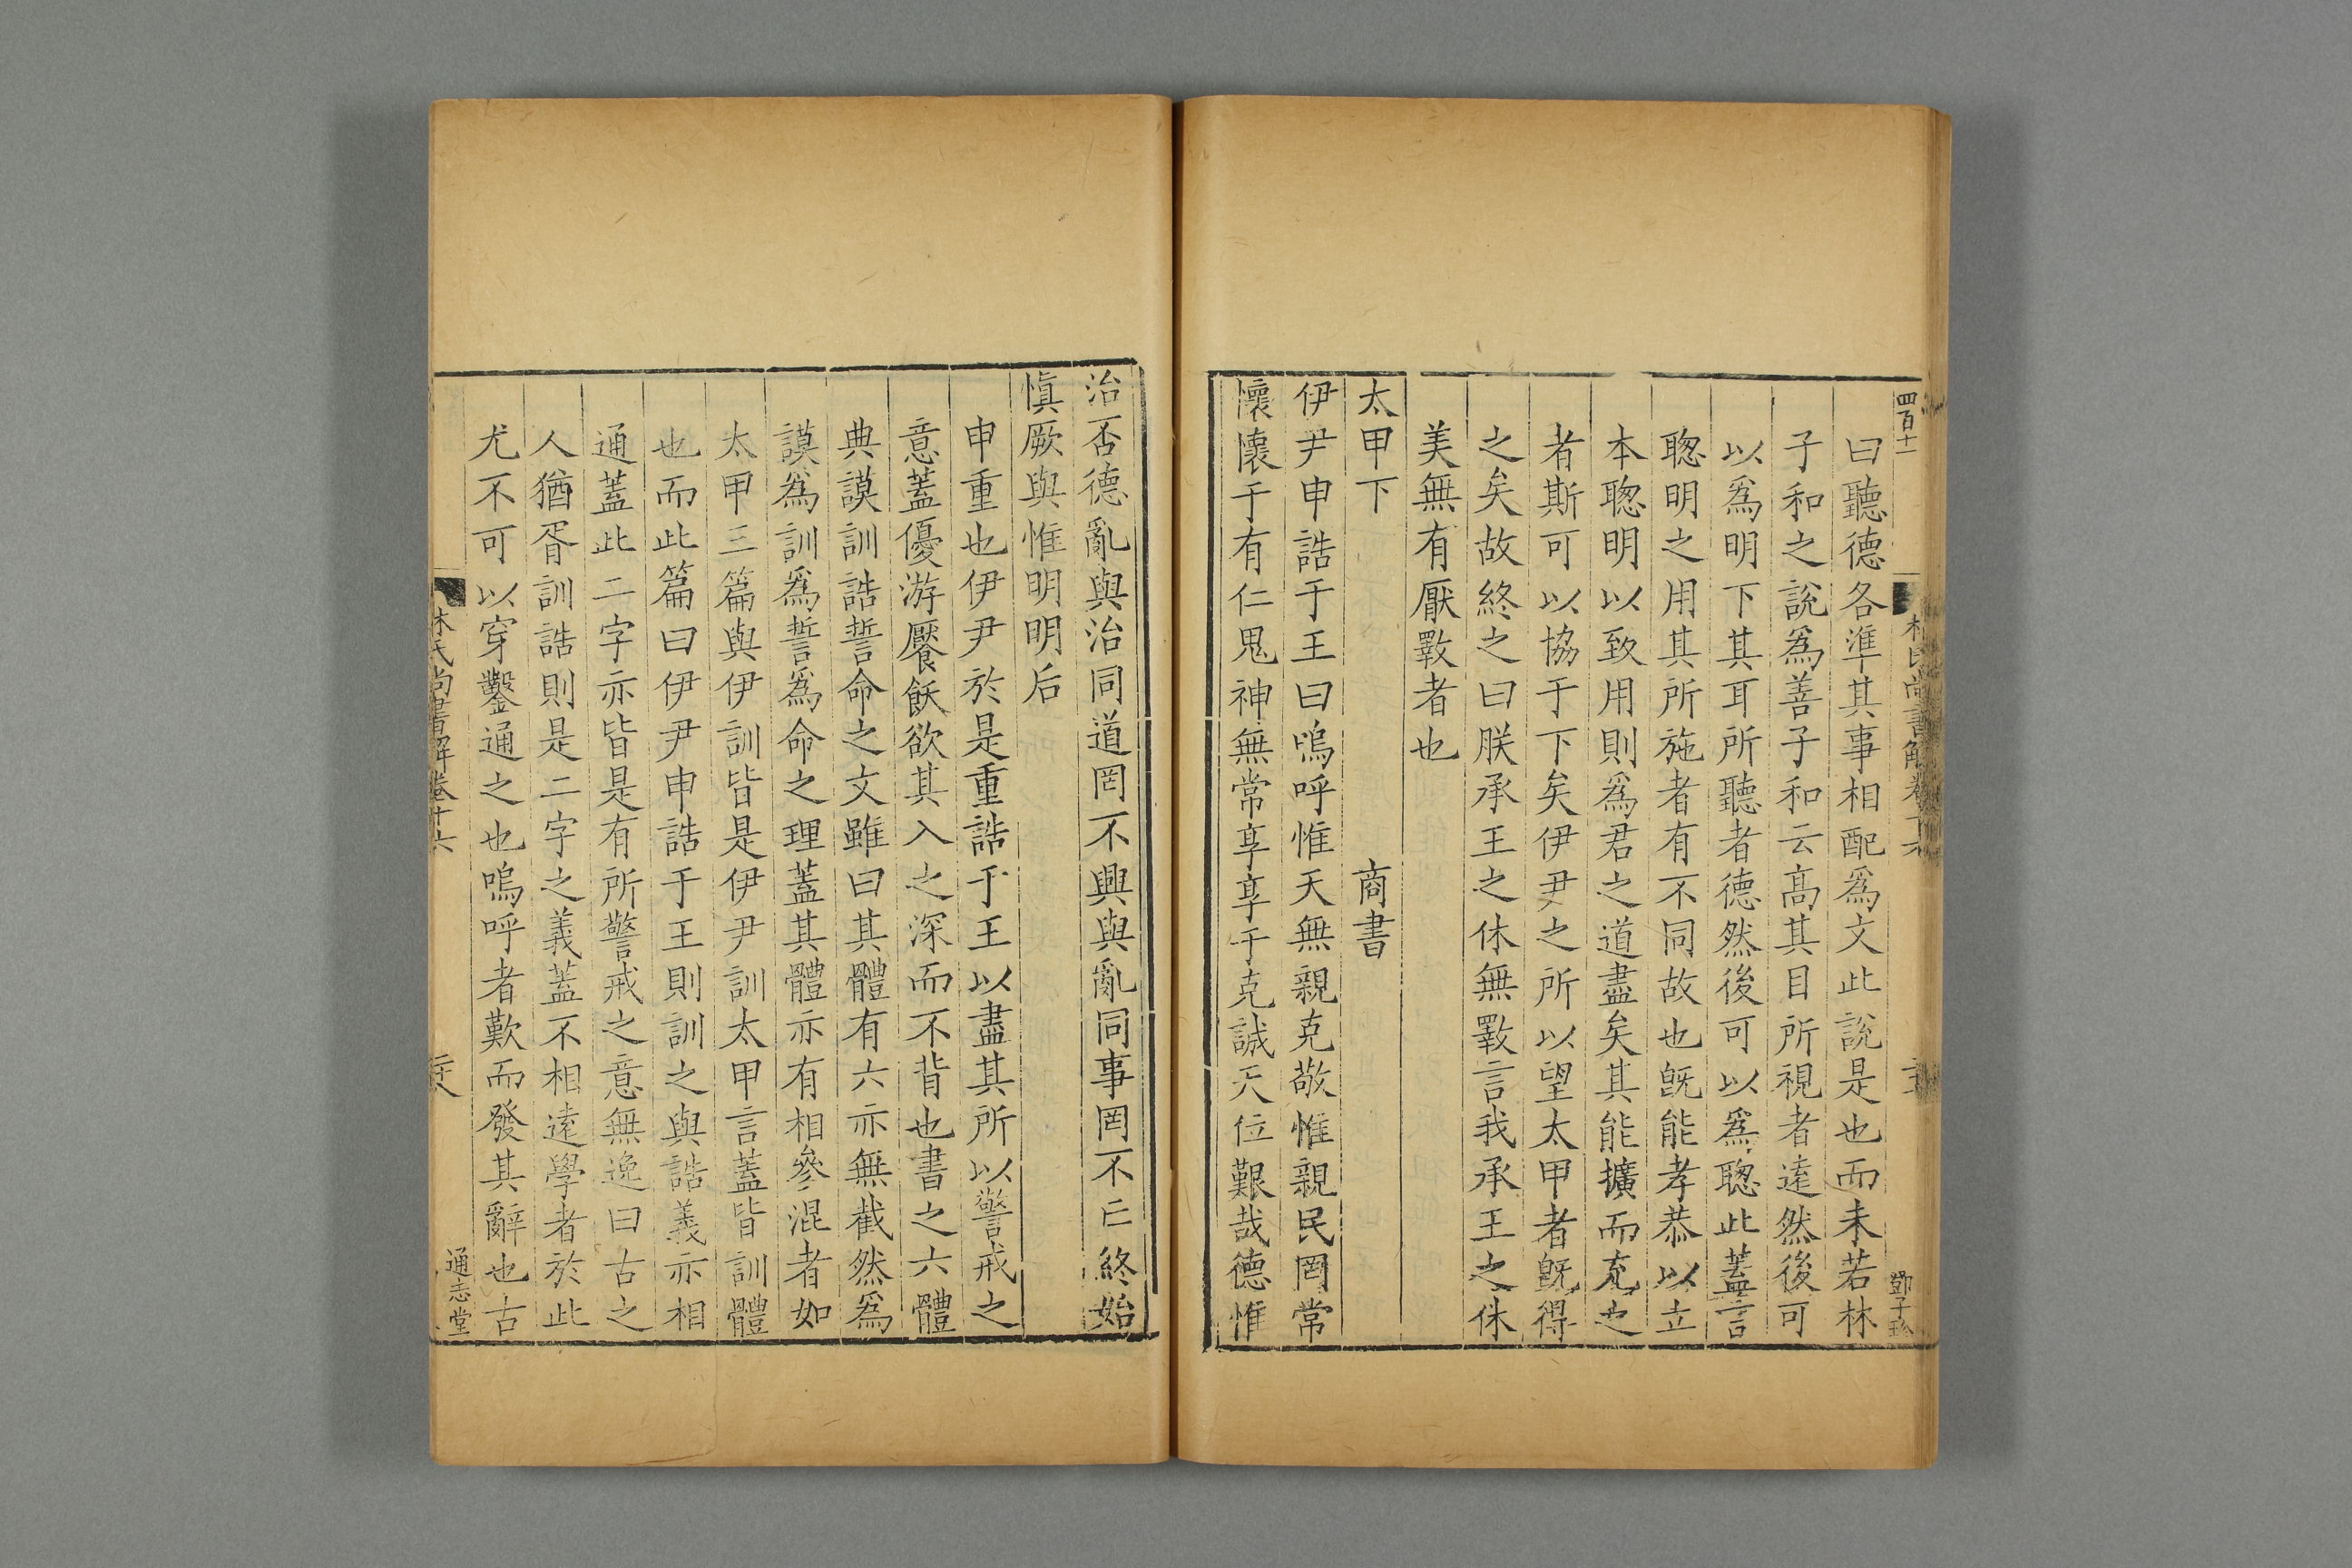 四百十一
林氏尚書解卷十六
鄧子珍
曰聽德各準其事相配爲文此說是也而未若林
子和之說爲善子和云高其目所視者遠然後可
以爲明下其耳所聽者德然後可以爲聰此蓋言
聰明之用其所施者有不同故也旣能孝恭以立
本聰明以致用則爲君之道盡矣其能擴而充之
者斯可以協于下矣伊尹之所以望太甲者旣得
之矣故終之曰朕承王之休無斁言我承王之休
美無有厭斁者也
太甲下 商書
伊尹申誥于王曰嗚呼惟天無親克敬惟親民罔常
懷懷于有仁鬼神無常享享于克誠天位艱哉德惟
治否德亂與治同道罔不興與亂同事罔不亡終始
愼厥與惟明明后
申重也伊尹於是重誥于王以盡其所以警戒之
意蓋優游饜飫欲其入之深而不背也書之六體
典謨訓誥誓命之文雖曰其體有六亦無截然爲
謨爲訓爲誓爲命之理蓋其體亦有相參混者如
太甲三篇與伊訓皆是伊尹訓太甲言蓋皆訓體
也而此篇曰伊尹申誥于王則訓之與誥義亦相
通蓋此二字亦皆是有所警戒之意無逸曰古之
人猶胥訓誥則是二字之義蓋不相遠學者於此
尤不可以穿鑿通之也嗚呼者歎而發其辭也古
林氏尚書解卷十六
通志堂